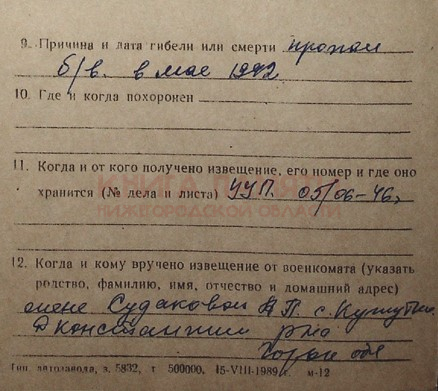 9. Причина и дата гибели или смерти пропал
б/в. в мае 1942
10. Где и когда похоронен
11. Когда и от кого получено извещение, его номер и где оно
хранится (№ дела и листа) УУП. 05/06-46г
НИЖЕГОРОДСКОЙ ОБЛАСТИ
12. Когда и кому вручено извещение от военкомата (указать
родство, фамилию, имя, отчество и домашний адрес)
жене Судаковой А П. с.
Д Константин р-на
Горьк обл
Тип. автозавода, з. 5832, т 500000, 15-VIII-1989 г. м-12